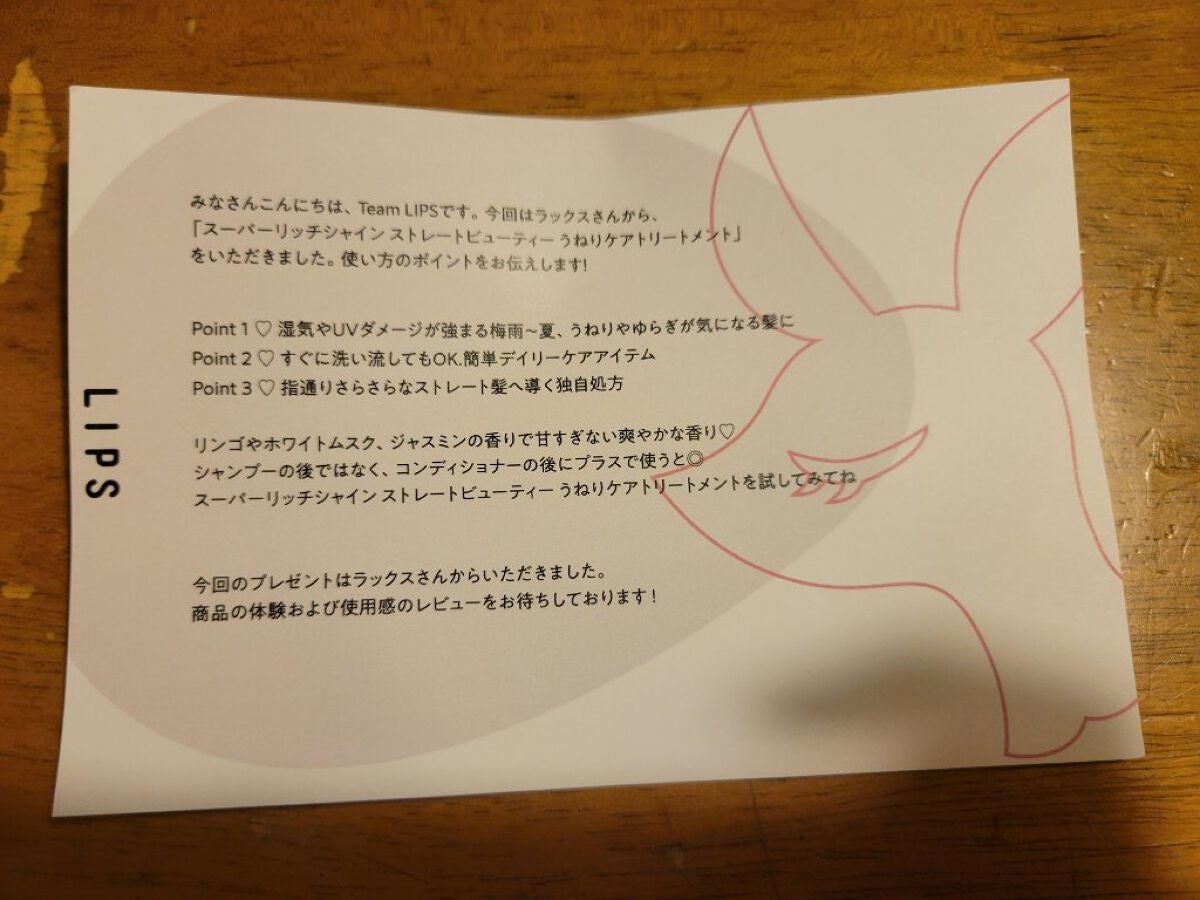 みなさんこんにちは、Team LIPSです。今回はラックスさんから、
「スーパーリッチシャイン ストレートビューティー うねりケアトリートメント」
をいただきました。使い方のポイントをお伝えします!
Point 1 ♡ 湿気やUVダメージが強まる梅雨~夏、うねりやゆらぎが気になる髪に
Point 2 ♡ すぐに洗い流してもOK.簡単デイリーケアアイテム
Point 3 ♡ 指通りさらさらなストレート髪へ導く独自処方
リンゴやホワイトムスク、ジャスミンの香りで甘すぎない爽やかな香り♡
シャンプーの後ではなく、コンディショナーの後にプラスで使うと◎
スーパーリッチシャイン ストレートビューティー うねりケアトリートメントを試してみてね
今回のプレゼントはラックスさんからいただきました。
商品の体験および使用感のレビューをお待ちしております!
LIPS